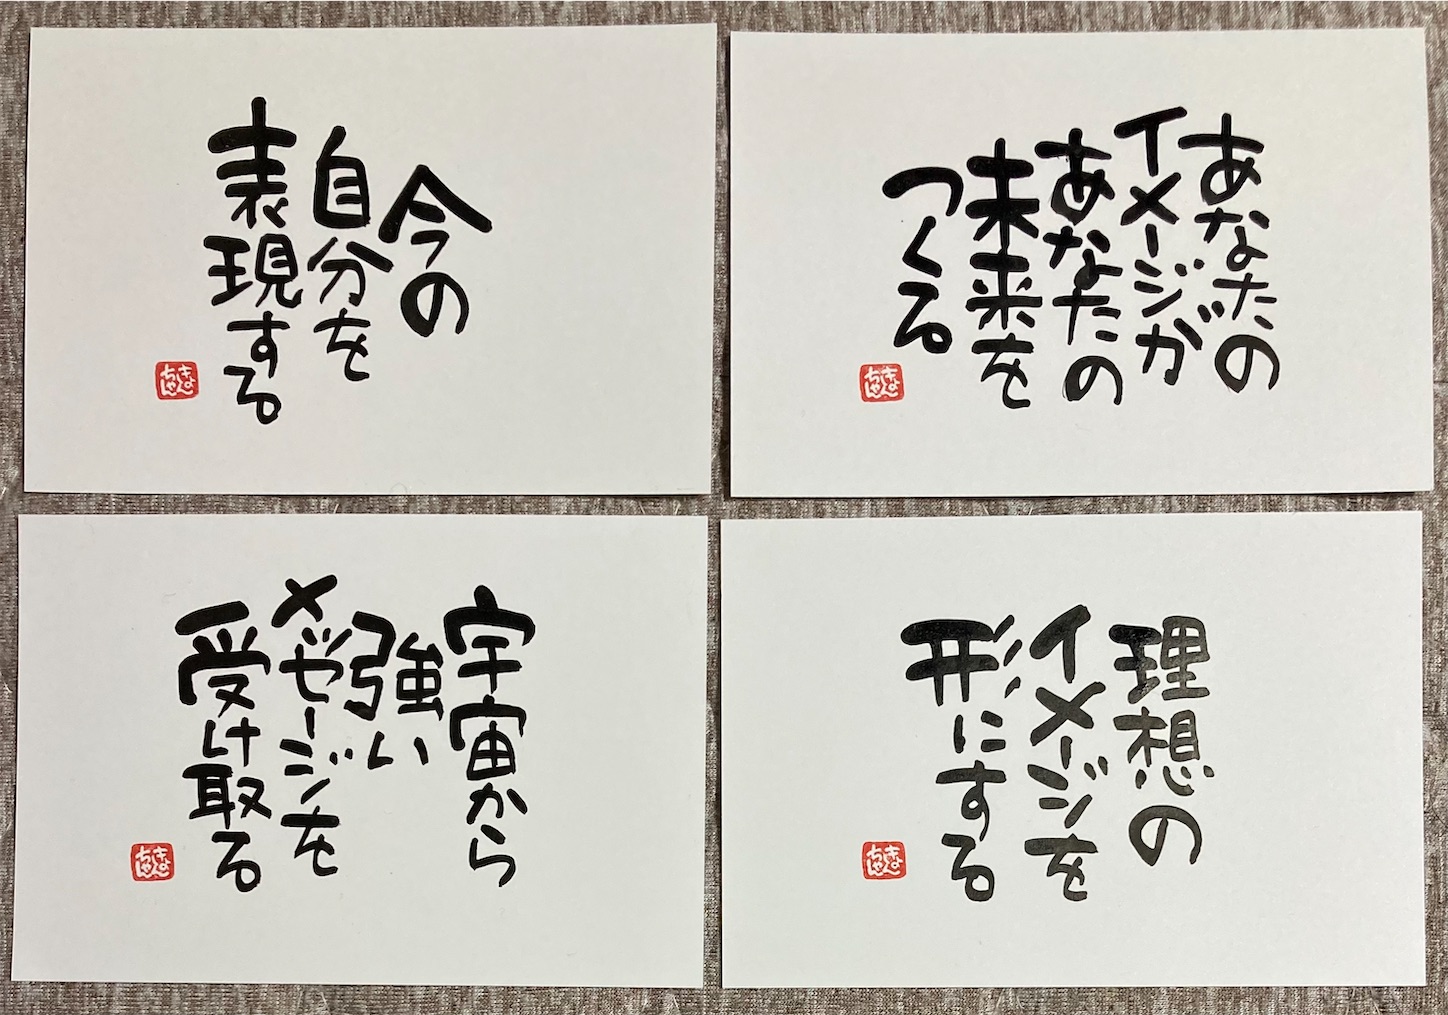 今の
自分を
表現する
あなたの
イメージが
あなたの
未来を
つくる
宇宙から
強い
メッセージを
受け取る
理想の
イメージを
形にする